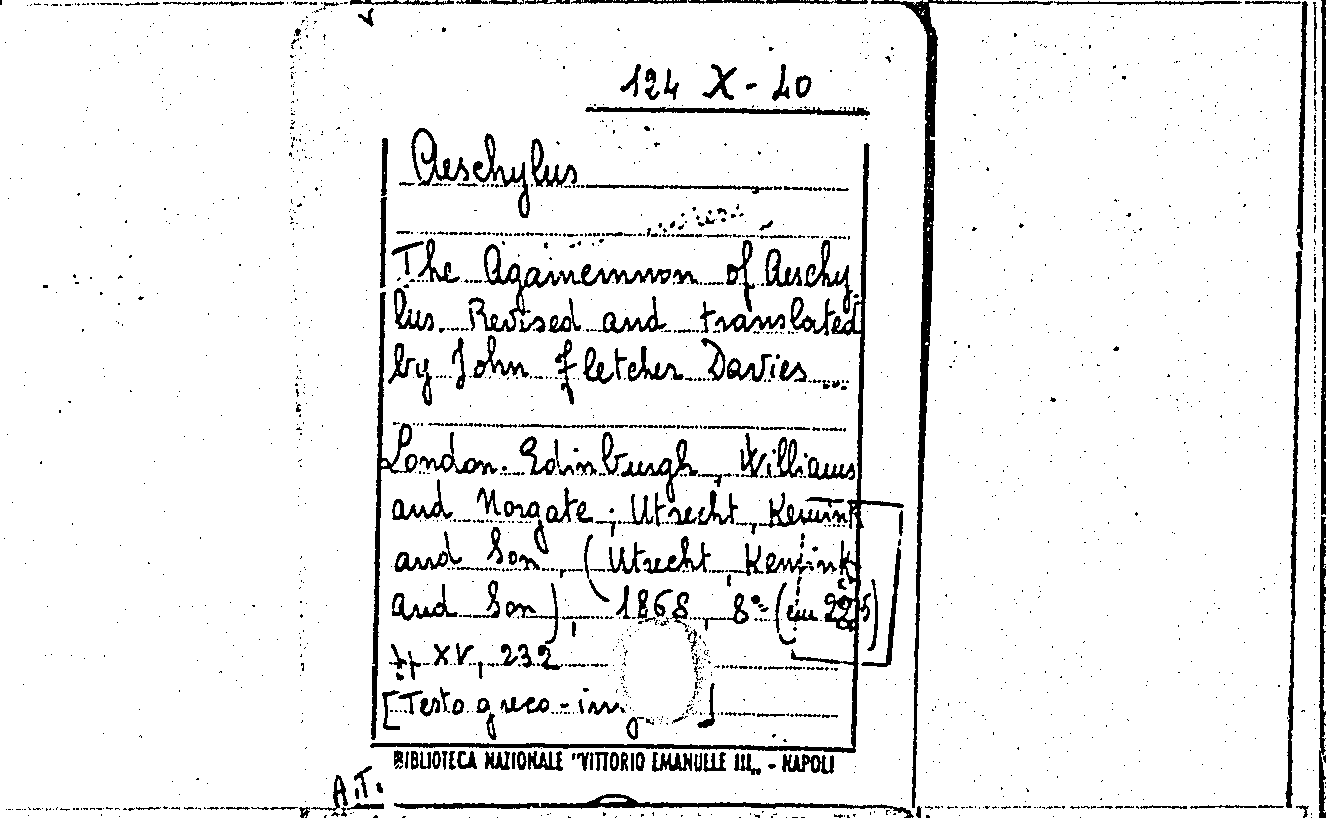 124 X - 40
Aeschylus
The Agamemnon of Aeschy
lus. Revised and translated
by John Fletcher Davies ...
London. Edinburgh, Williams
and Norgate; Utrecht, Kemink
and Son, (Utrecht, Kemink
and Son), 1868, 8° (cm 22,5)
pp XV, 232
[Testo greco-in ]
BIBLIOTECA NAZIONALE "VITTORIO EMANUELE III„ - NAPOLI
A.T.